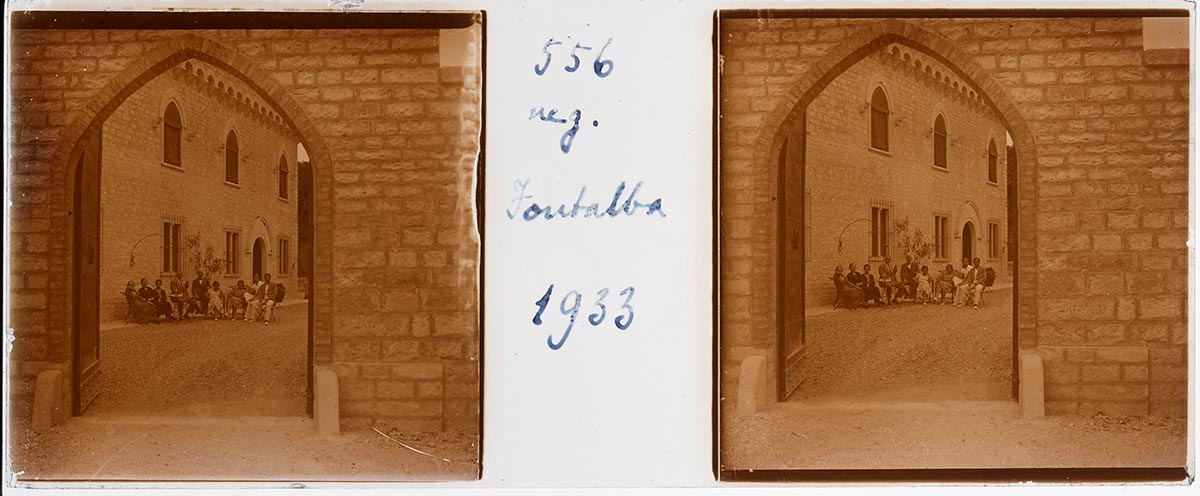 556
neg.
Fontalba
1933